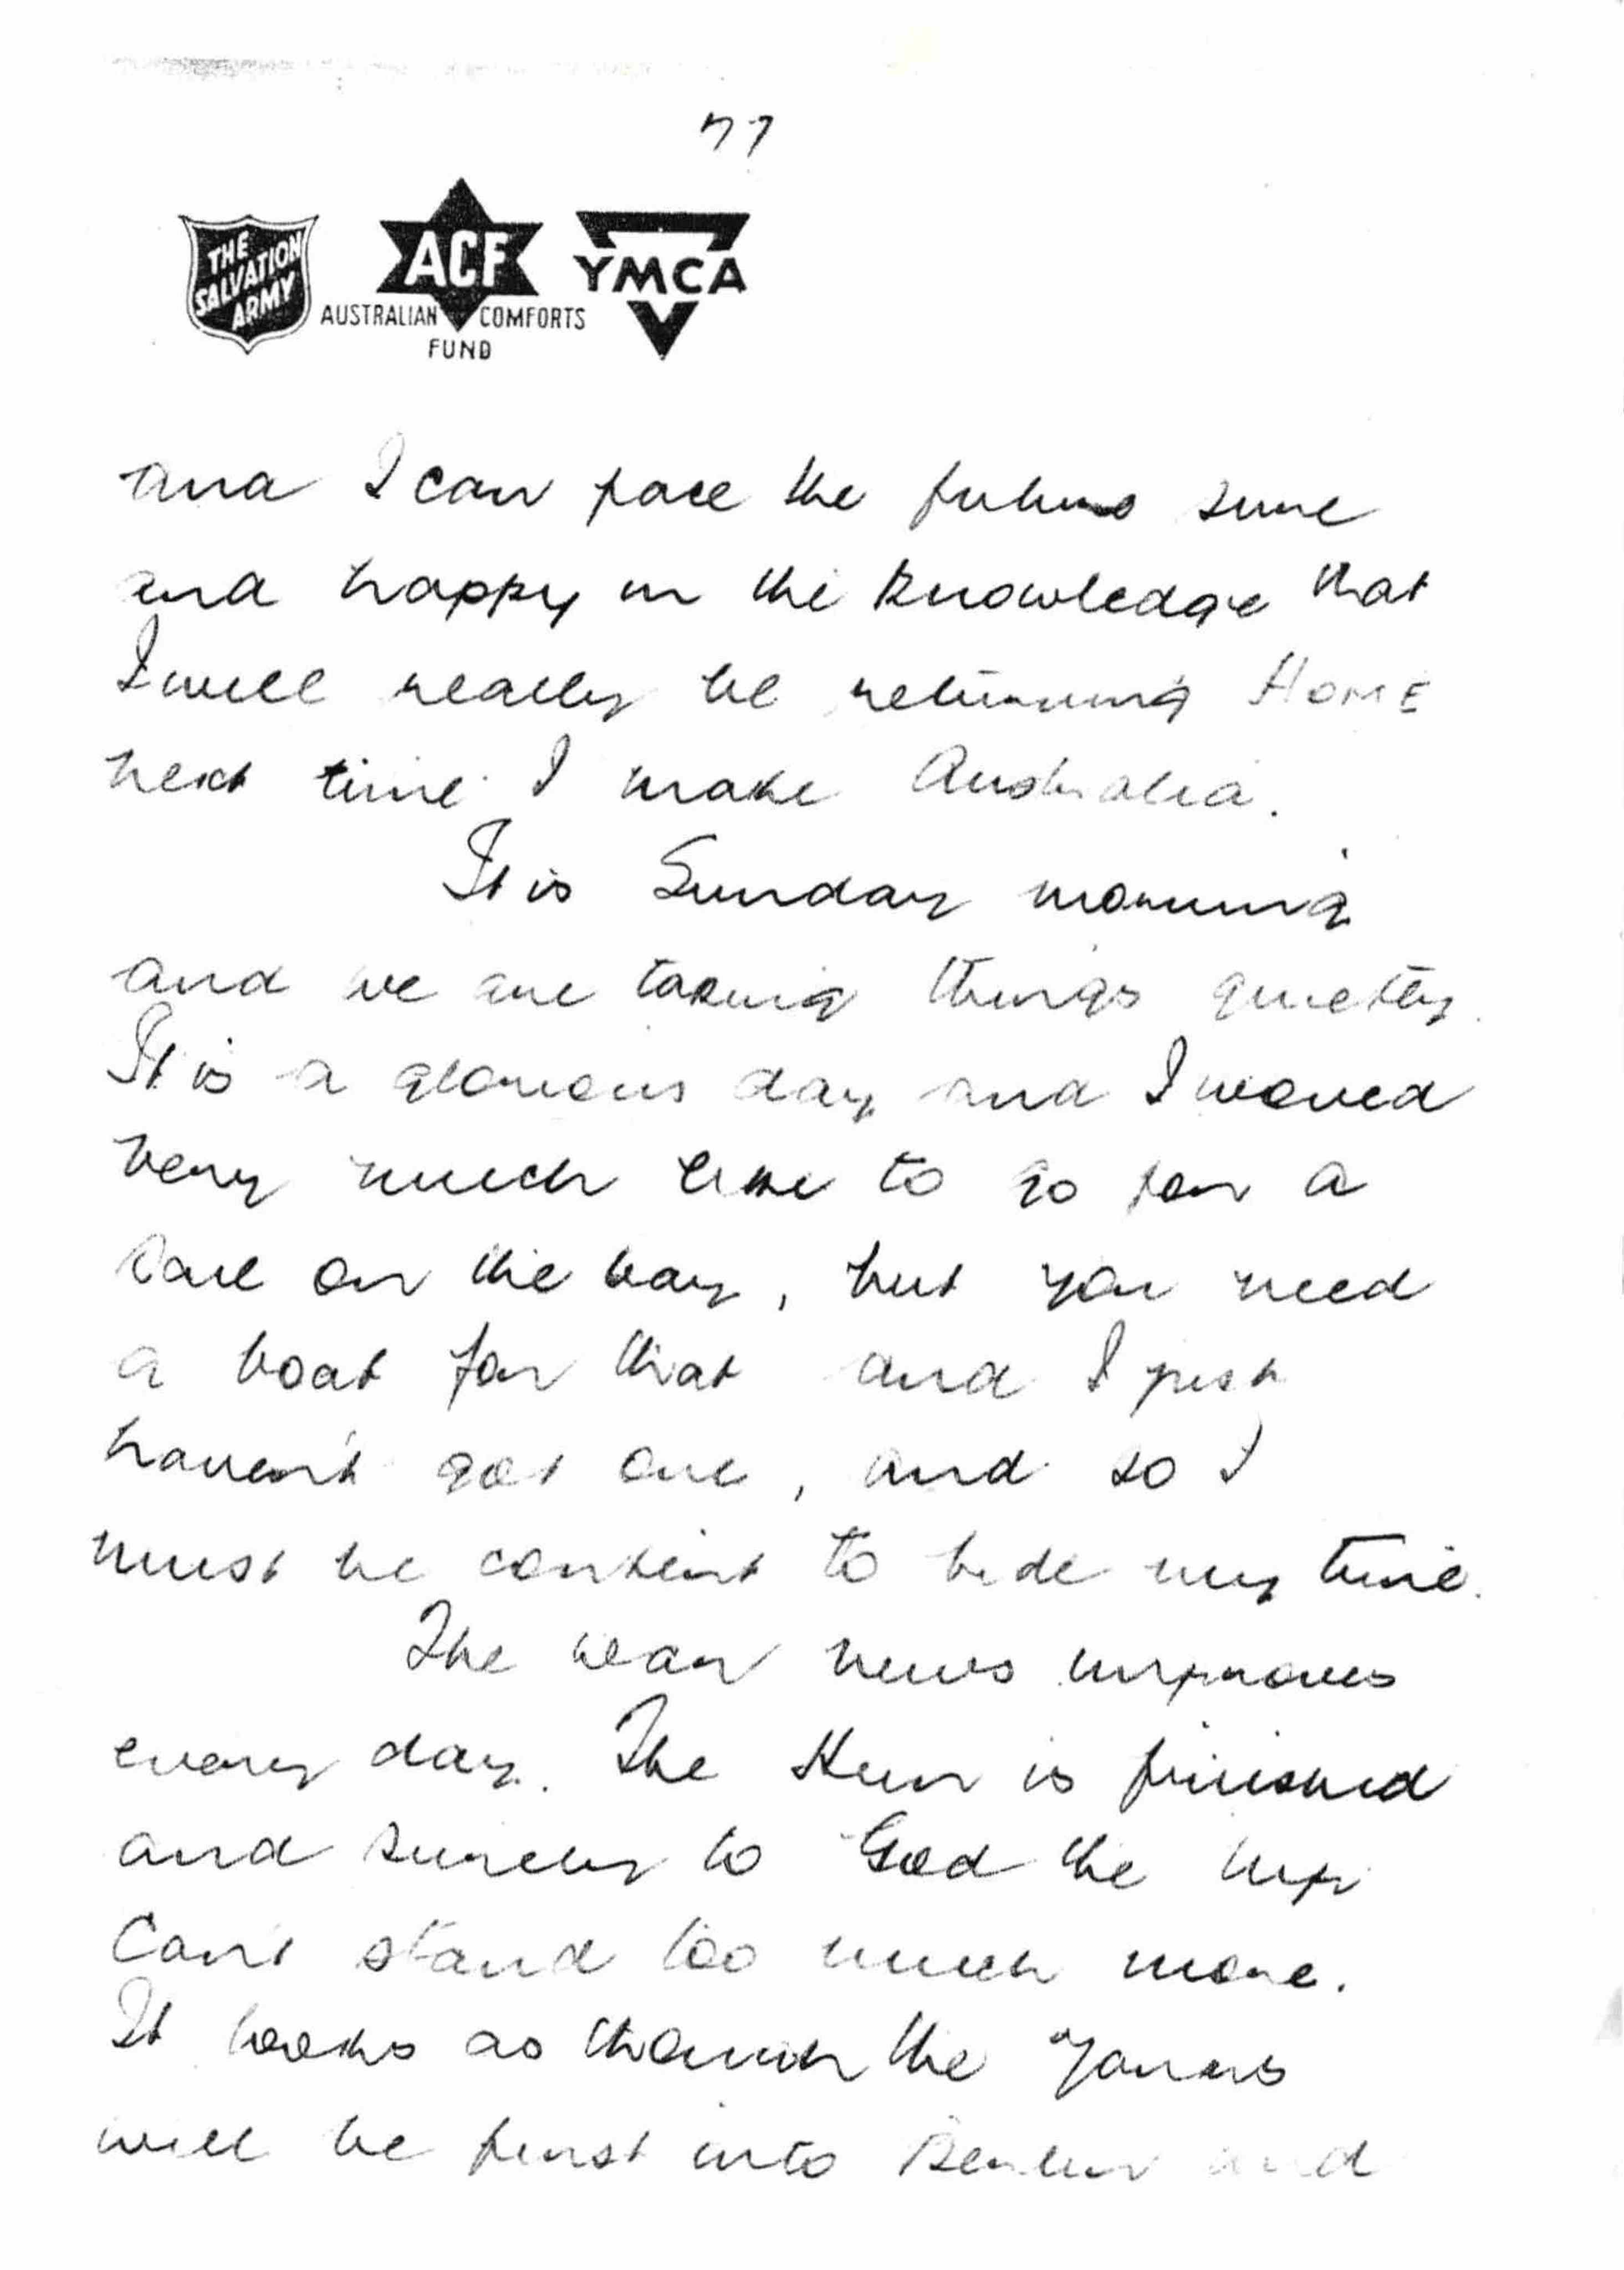 77
THE SALVATION ARMY
ACF
AUSTRALIAN COMFORTS FUND
YMCA
and I can face the future sure
and happy in the knowledge that
I will really be returning HOME
next time I make Australia.
It is Sunday morning
and we are taking things quietly.
It is a glorious day and I would
very much like to go for a
sail on the bay, but you need
a boat for that and I just
haven't got one, and so I
must be content to bide my time.
The war news improves
every day. The Hun is finished
and surely to God the Nip
can't stand too much more.
It looks as though the Yanks
will be first into Berlin and